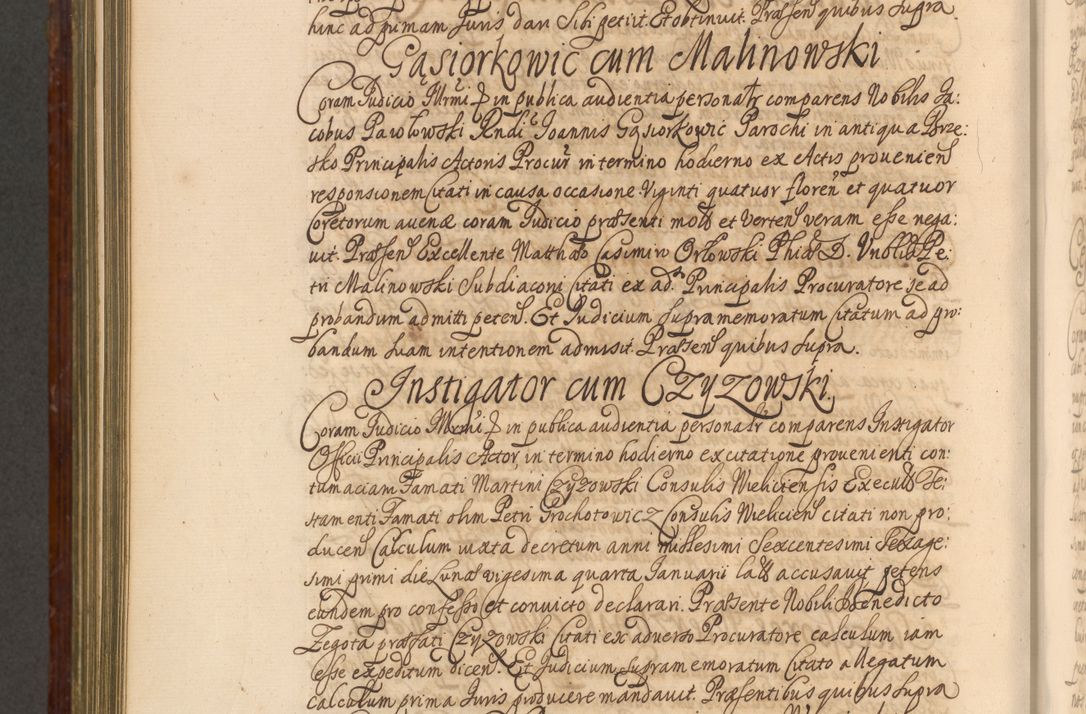 hinc ad primam Juris dari Sibi petiit. Et obtinuit. Præsen quibus Supra.
Gąsiorkowic cum Malinowski
Coram Judicio Illrmi D in publica audientia personaltr comparens Nobilis Ja:
cobus Pawlowski Rndi Joannis Gąsiorkowic Parochi in antiqua Brze:
sko Principalis Actoris Procur in termino hodierno ex Actis provenien
responsionem Citati in causa occasione Viginti quatuor floren et quatuor
Coretorum avenæ coram Judicio præsenti mota et Verten veram esse nega:
vit. Præsen Excellente Matthæo Casimiro Orłowski Phiæ D. Vnobilis Pe:
tri Malinowski Subdiaconi Citati ex ad. Principalis Procuratore se ad
probandum admitti peten. Et Judicium supramemoratum Citatum ad pro:
bandum suam intentionem admisit. Præsen quibus supra.
Instigator cum Czyzowski.
Coram Judicio Illrmi D in publica audientia personaltr comparens Instigator
Officii Principalis Actor, in termino hodierno ex citatione provenienti con:
tumaciam Famati Martini Czyzowski Consulis Weliciensis Execut Te:
stamenti Famati olim Petri Prochotowicz Consulis Welicien citati non pro:
ducen Calculum iuxta decretum anni millesimi Sexcentesimi Sexage:
simi primi die Lunæ vigesima quarta Januarii lat accusavit petens
eundem pro confesso et convicto declarari. Præsente Nobili Benedicto
Zegota præfati Czyzowski Citati ex adverso Procuratore calculum iam
esse expeditum dicen. Et Judicium supramemoratum Citato allegatum
calculum prima Juris producere mandavit. Præsentibus quibus supra